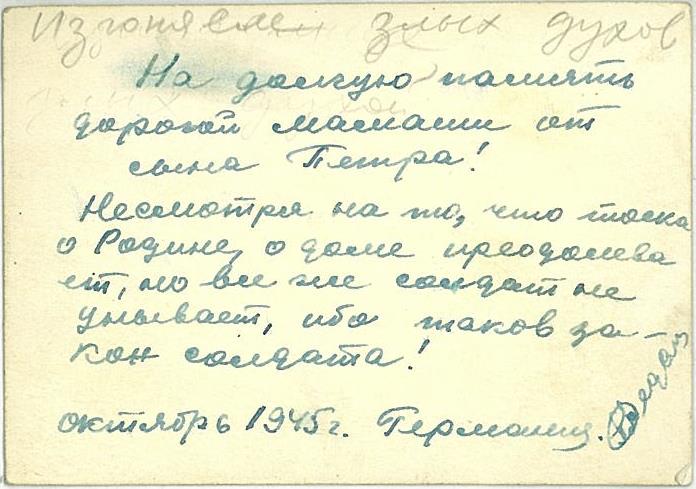 Изгоняем злых духов
На долгую память
дорогой мамаши от
сына Петра!
Несмотря на то, что тоска
о Родине, о доме преодолева
ет, но все же солдат не
унывает, ибо таков за-
кон солдата!
октябрь 1945г. Германия.